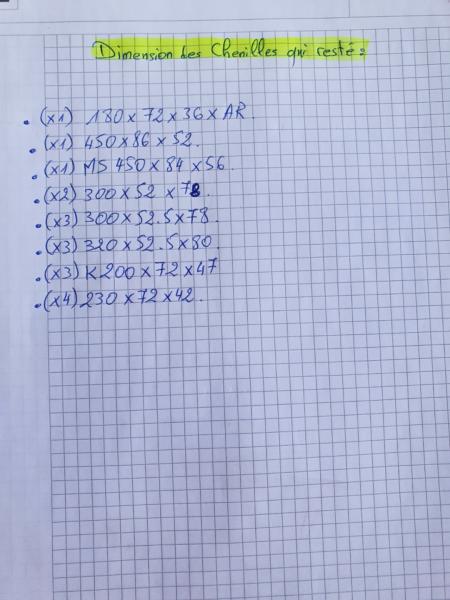 Dimension des Chenilles qui resté :
• (x1) 180 x 72 x 36 x AR.
• (x1) 450 x 86 x 52.
• (x1) MS 450 x 84 x 56.
• (x2) 300 x 52 x 78.
• (x3) 300 x 52.5 x 78.
• (x3) 320 x 52.5 x 80.
• (x3) K200 x 72 x 47
• (x4) 230 x 72 x 42.